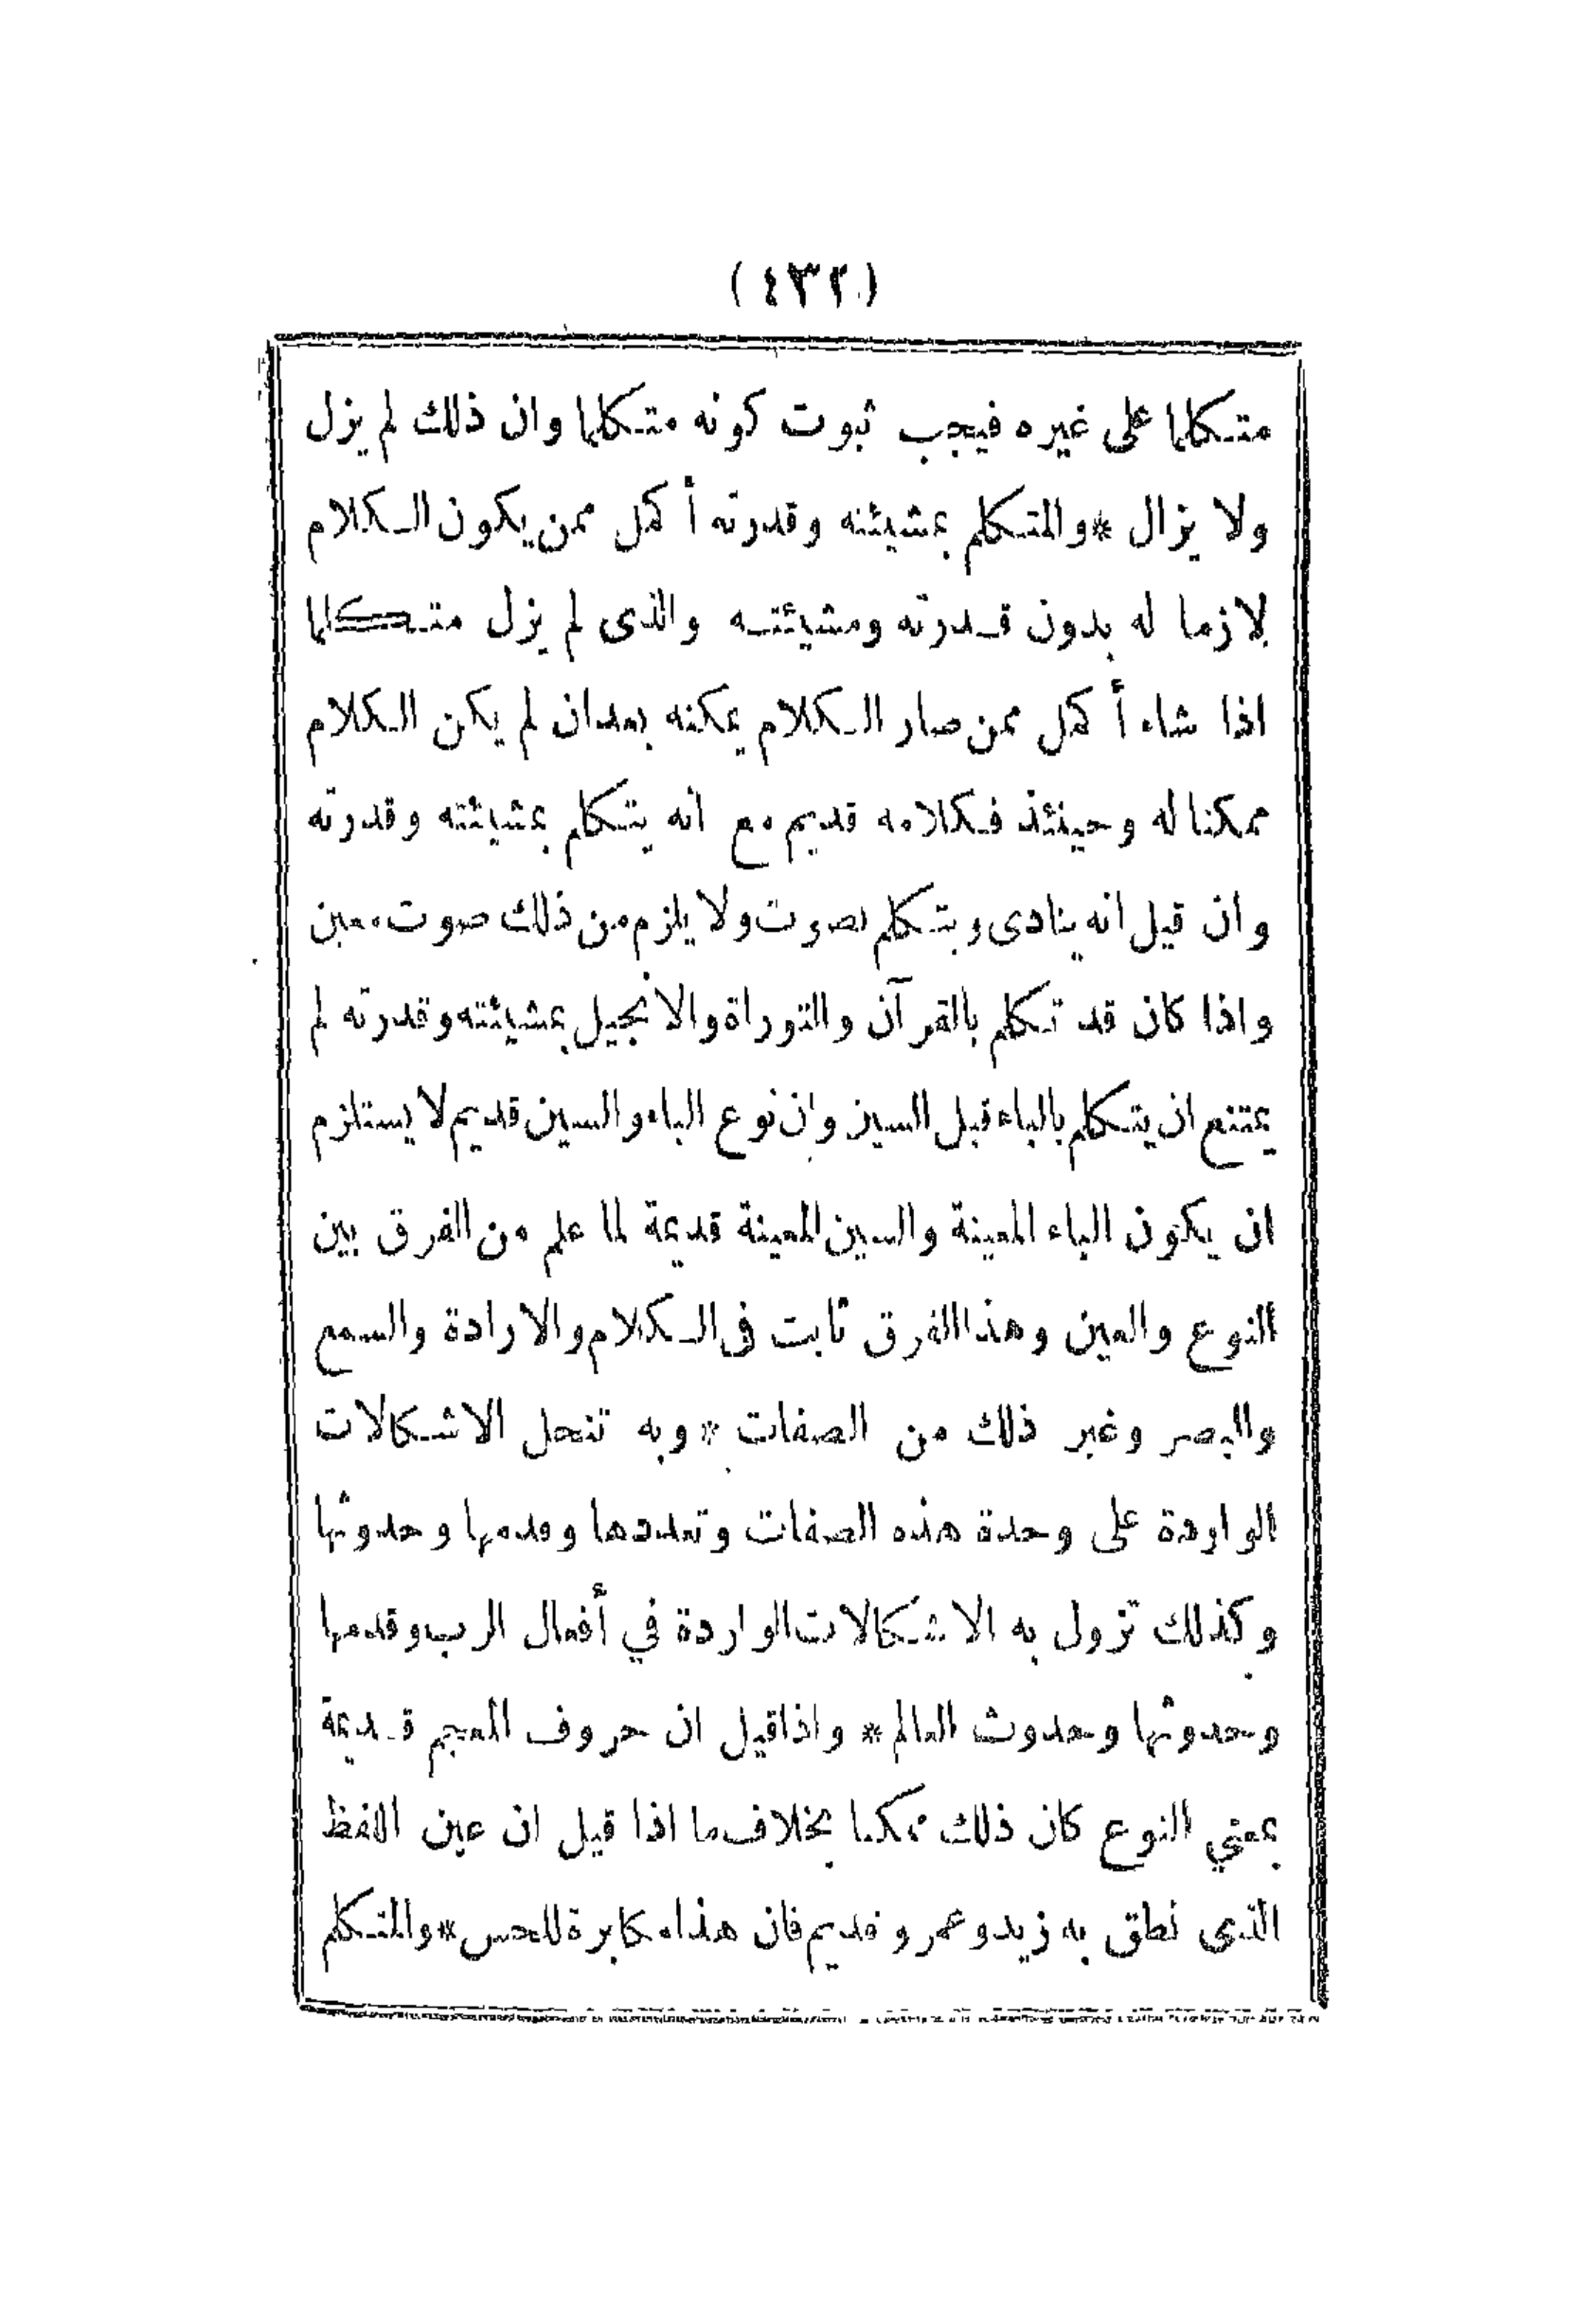 (٤٣٢)
متكلما على غيره فيجب ثبوت كونه متكلما وان ذلك لم يزل
ولا يزال * والمتكلم بمشيئته وقدرته أكمل ممن يكون الكلام
لازما له بدون قدرته ومشيئته والذى لم يزل متكلما
اذا شاء أكمل ممن صار الكلام يمكنه بعد ان لم يكن الكلام
ممكنا له وحينئذ فكلامه قديم مع انه يتكلم بمشيئته وقدرته
وان قيل انه ينادى ويتكلم بصوت ولا يلزم من ذلك صوت معين
واذا كان قد تكلم بالقرآن والتوراة والانجيل بمشيئته وقدرته لم
يمتنع ان يتكلم بالباء قبل السين وان نوع الباء والسين قديم لا يستلزم
ان يكون الباء المعينة والسين المعينة قديمة لما علم من الفرق بين
النوع والعين وهذا الفرق ثابت فى الكلام والارادة والسمع
والبصر وغير ذلك من الصفات * وبه تنحل الاشكالات
الواردة على وحدة هذه الصفات وتعددها وقدمها وحدوثها
وكذلك تزول به الاشكالات الواردة في أفعال الرب وقدمها
وحدوثها وحدوث العالم * واذا قيل ان حروف المعجم قديمة
بمعني النوع كان ذلك ممكنا بخلاف ما اذا قيل ان عين اللفظ
الذى نطق به زيد وعمرو قديم فان هذا مكابرة للحس * والمتكلم